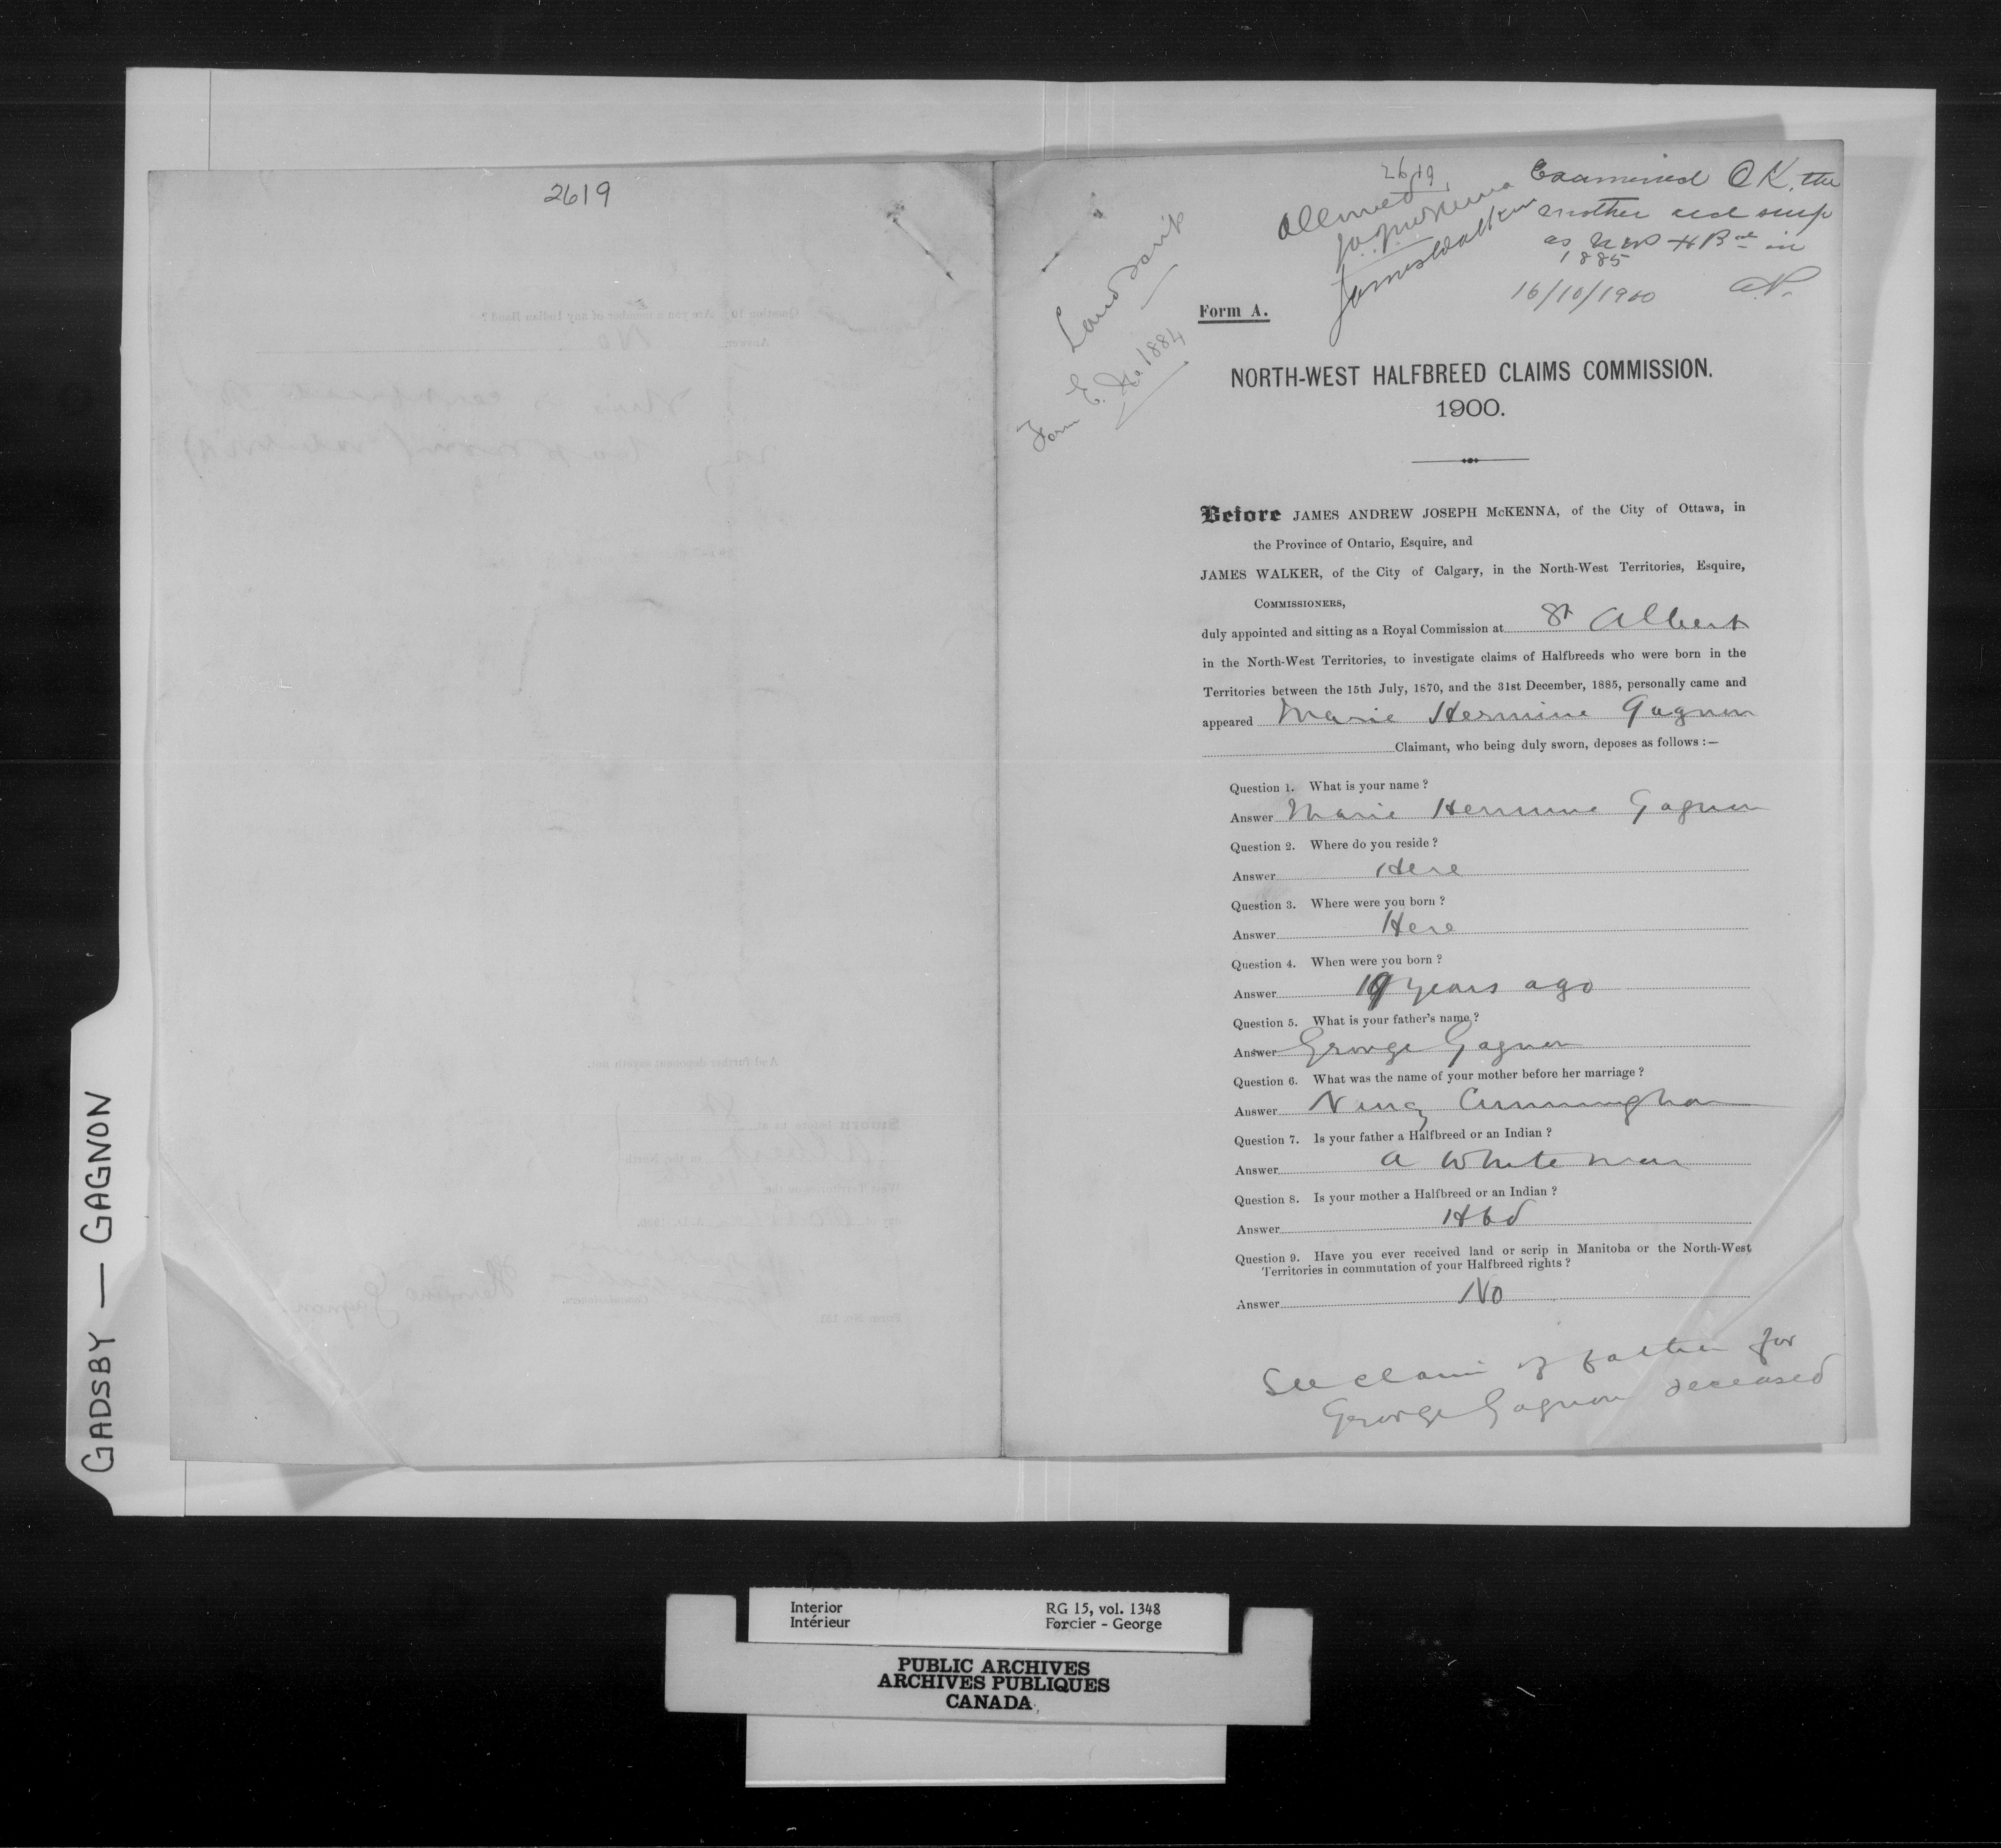 GADSBY — GAGNON
2619
2619
Allowed
J.A.J. McKenna
James Walker
Examined OK. the
mother recd scrip
as NW H B ed in
1885
16/10/1900
Land Scrip
Form E. No. 1884
Form A.
NORTH-WEST HALFBREED CLAIMS COMMISSION.
1900.
Before JAMES ANDREW JOSEPH McKENNA, of the City of Ottawa, in
the Province of Ontario, Esquire, and
JAMES WALKER, of the City of Calgary, in the North-West Territories, Esquire,
COMMISSIONERS,
duly appointed and sitting as a Royal Commission at St Albert
in the North-West Territories, to investigate claims of Halfbreeds who were born in the
Territories between the 15th July, 1870, and the 31st December, 1885, personally came and
appeared Marie Hermine Gagnon
Claimant, who being duly sworn, deposes as follows :—
Question 1. What is your name ?
Answer Marie Hermine Gagnon
Question 2. Where do you reside ?
Answer Here
Question 3. Where were you born ?
Answer Here
Question 4. When were you born ?
Answer 19 years ago
Question 5. What is your father's name ?
Answer George Gagnon
Question 6. What was the name of your mother before her marriage ?
Answer Nancy Cunningham
Question 7. Is your father a Halfbreed or an Indian ?
Answer a White man
Question 8. Is your mother a Halfbreed or an Indian ?
Answer Hbd
Question 9. Have you ever received land or scrip in Manitoba or the North-West
Territories in commutation of your Halfbreed rights ?
Answer No
See claim of father for
George Gagnon deceased
Interior
Intérieur
RG 15, vol. 1348
Forcier - George
PUBLIC ARCHIVES
ARCHIVES PUBLIQUES
CANADA